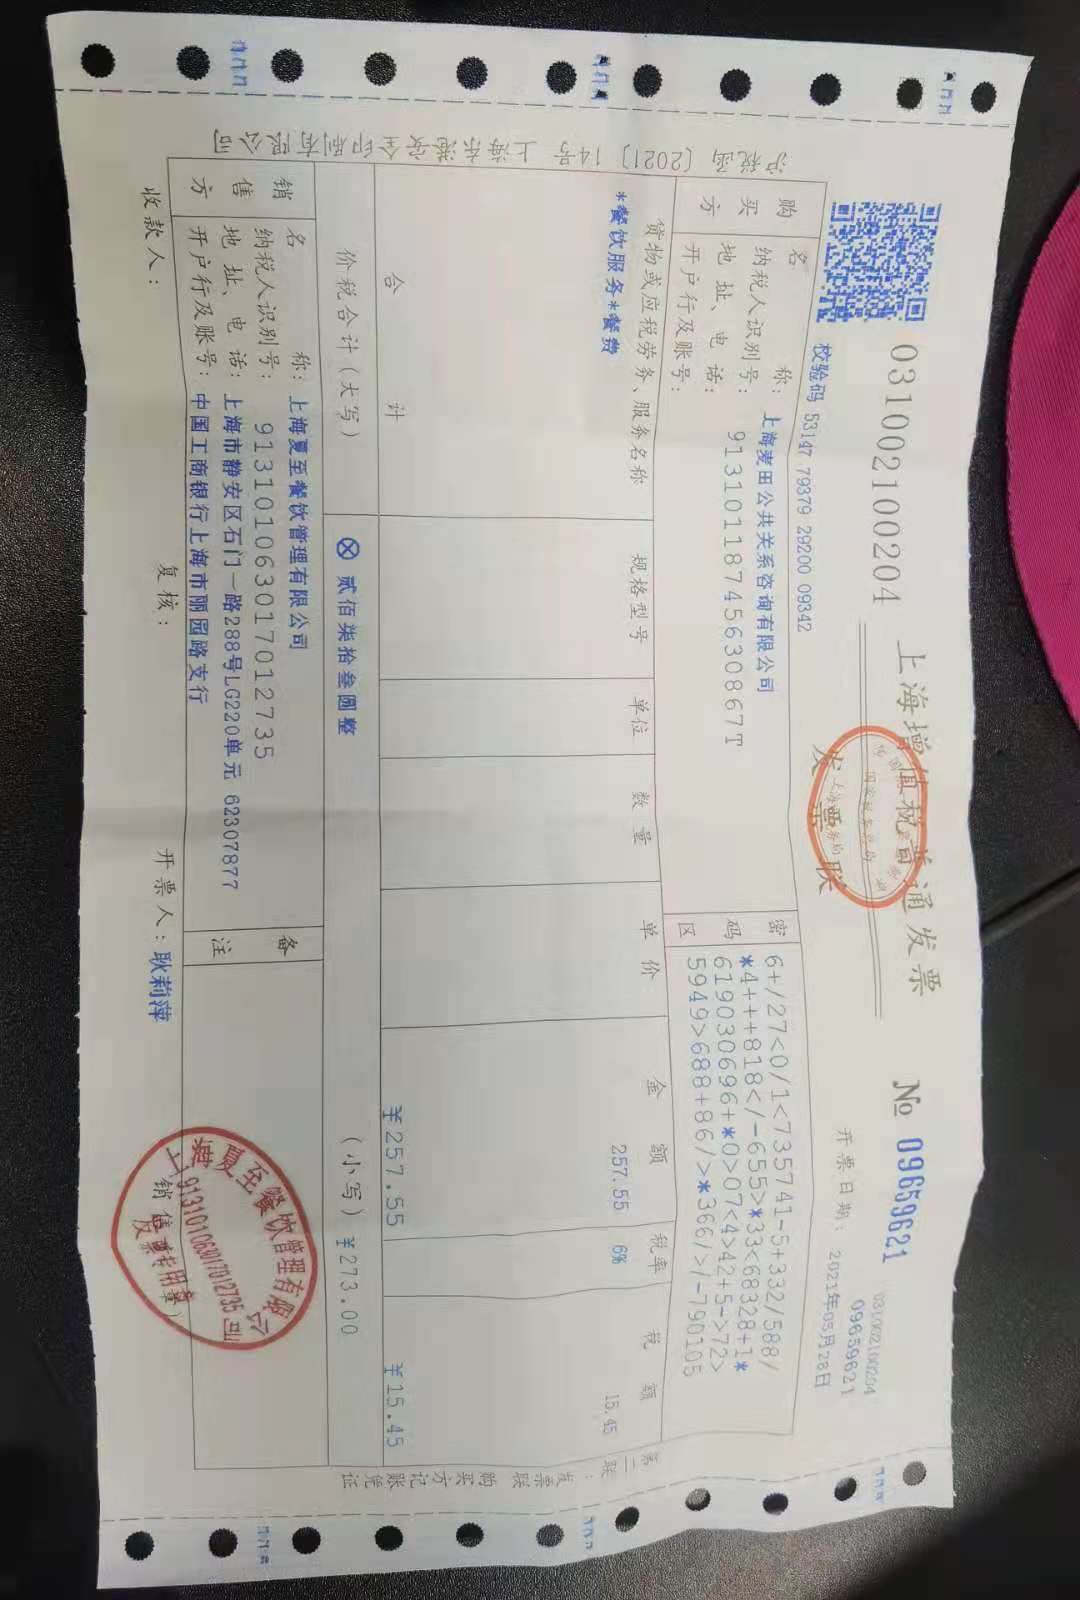 031002100204
上海增值税普通发票
发票联
№ 09659621
031002100204
09659621
校验码 53147 79379 29200 09342
开票日期: 2021年05月28日
购买方
名称: 上海麦田公共关系咨询有限公司
纳税人识别号: 91310118745630867T
地址、电话:
开户行及账号:
密码区
6+/27<0/1<735741-5+332/588/
*4+++818</-655>*33<68328+1*
619030696+*0>07<4>42+5->72>
5949>688+86/>*366/>/-790105
货物或应税劳务、服务名称 规格型号 单位 数量 单价 金额 税率 税额
*餐饮服务*餐费 257.55 6% 15.45
合计 ¥257.55 ¥15.45
价税合计(大写) ⊗ 贰佰柒拾叁圆整 (小写) ¥273.00
销售方
名称: 上海夏至餐饮管理有限公司
纳税人识别号: 913101063017012735
地址、电话: 上海市静安区石门一路288号LG220单元 62307877
开户行及账号: 中国工商银行上海市丽园路支行
备注
收款人:
复核:
开票人: 耿莉萍
销售方:(章)
上海夏至餐饮管理有限公司
913101063017012735
发票专用章
沪税函〔2021〕14号 上海东港安全印刷有限公司
第二联:发票联 购买方记账凭证